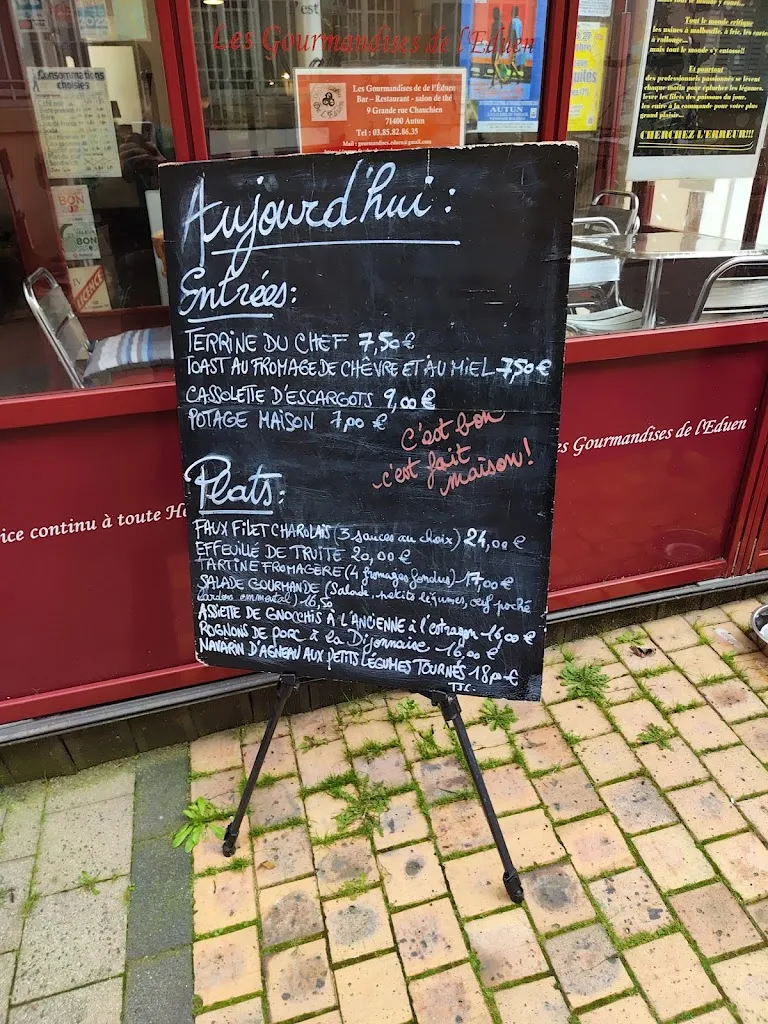 Les Gourmandises de l'Eduen
Consommations
choisies
Les Gourmandises de de l'Éduen
Bar – Restaurant - salon de thé
9 Grande rue Chauchien
71400 Autun
Tel : 03.85.82.86.35
AUTUN
Tout le monde critique
mais tout le monde s'y entasse!!
Et pourtant
des professionnels passionnés se lèvent
chaque matin pour éplucher les légumes,
lever les filets des poissons du jour,
les cuire à la commande pour votre plus
grand plaisir...
CHERCHEZ L'ERREUR!!!
BON
BON
LICENCE
IV
Aujourd'hui :
Entrées :
TERRINE DU CHEF 7,50 €
TOAST AU FROMAGE DE CHÈVRE ET AU MIEL 7,50 €
CASSOLETTE D'ESCARGOTS 9,00 €
POTAGE MAISON 7,00 €
C'est bon
c'est fait
maison !
Plats :
FAUX FILET CHAROLAIS (3 sauces au choix) 24,00 €
EFFEUILLÉ DE TRUITE 20,00 €
TARTINE FROMAGÈRE (4 fromages fondus) 17,00 €
SALADE GOURMANDE (Salade, petits légumes, œuf poché
lardons emmental) 16,50
ASSIETTE DE GNOCCHIS À L'ANCIENNE à l'estragon 16,00 €
ROGNONS DE PORC à la Dijonnaise 16,00 €
NAVARIN D'AGNEAU AUX PETITS LÉGUMES TOURNÉS 18,00 €
T.S.C.
es Gourmandises de l'Eduen
ice continu à toute H